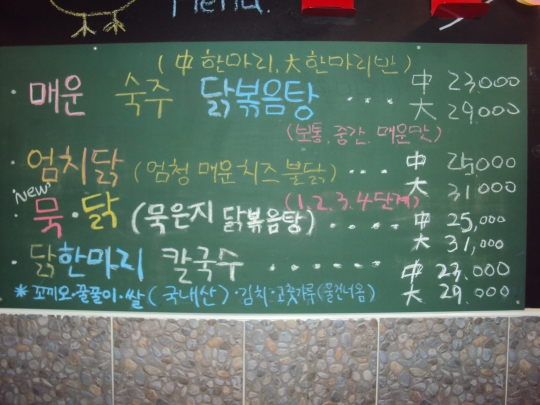 Menu.
(中 한마리, 大 한마리반)
매운 숙주 닭볶음탕 ... 中 23,000
大 29,000
(보통, 중간, 매운맛)
엄치닭 (엄청 매운 치즈 불닭) .. 中 25,000
大 31,000
New
(1, 2, 3, 4단계)
묵·닭 (묵은지 닭볶음탕) ..... 中 25,000
大 31,000
닭한마리 칼국수 ...... 中 23,000
大 29,000
* 꼬끼오·꿀꿀이·쌀 (국내산)·김치·고춧가루 (물건너옴)